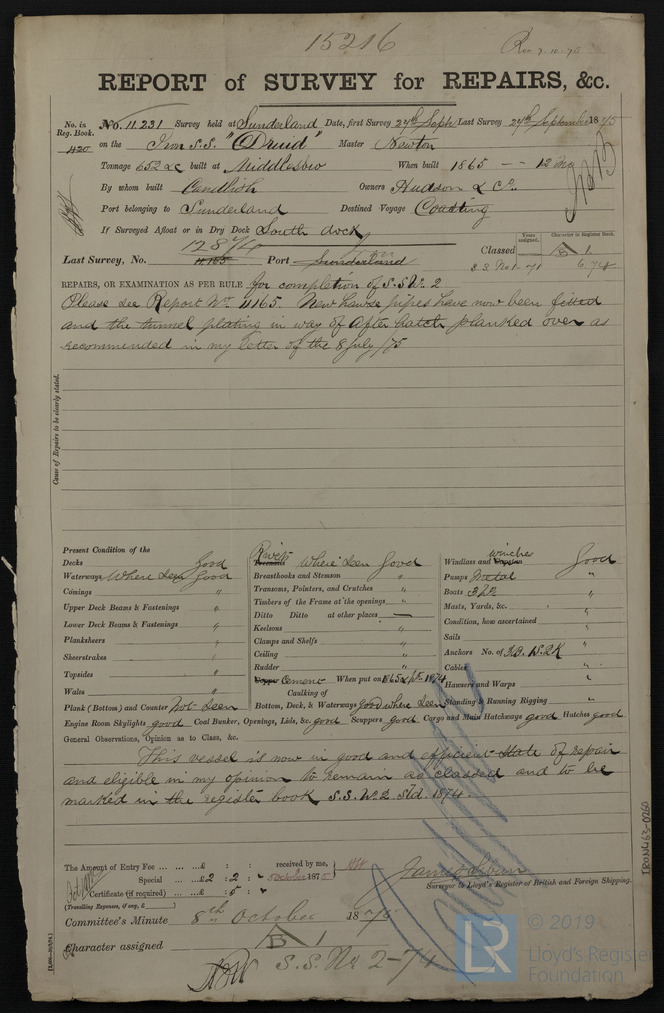 15216
Rec 7.10.75
REPORT of SURVEY for REPAIRS, &c.
No. in Reg. Book. No. 11.231 Survey held at Sunderland Date, first Survey 27th Sept Last Survey 27th September 1875
420 on the Iron S.S. "Druid" Master Newton
Tonnage 652 built at Middlesbro When built 1865 -- 12 mo
By whom built Candlish Owners Hudson & Co.
Port belonging to Sunderland Destined Voyage Coasting
If Surveyed Afloat or in Dry Dock South dock
Years assigned. Character in Register Book.
Last Survey, No. 11.165 Port Sunderland Classed B 1
S.S. No 1-71 6.74
REPAIRS, OR EXAMINATION AS PER RULE for completion of S.S. No. 2
Please see Report No. 11165. New hawse pipes have now been fitted
and the tunnel plating in way of after hatch planked over as
recommended in my letter of the 8 July/75
Cause of Repairs to be clearly stated.
Present Condition of the
Decks Good
Waterways Where Seen Good
Comings "
Upper Deck Beams & Fastenings "
Lower Deck Beams & Fastenings "
Planksheers "
Sheerstrakes "
Topsides "
Wales "
Plank (Bottom) and Counter Not Seen
Rivets Where Seen Good
Breasthooks and Stemson "
Transoms, Pointers, and Crutches "
Timbers of the Frame at the openings "
Ditto Ditto at other places —
Keelsons "
Clamps and Shelfs "
Ceiling "
Rudder "
Cement When put on 1865 & pt. 1874
Caulking of
Bottom, Deck, & Waterways Good where Seen
Windlass and winches Good
Pumps Metal "
Boats 3 "
Masts, Yards, &c. "
Condition, how ascertained "
Sails "
Anchors No. of 3B. 1S. 2K "
Cables "
Hawsers and Warps "
Standing & Running Rigging "
Engine Room Skylights good Coal Bunker, Openings, Lids, &c. good Scuppers good Cargo and Main Hatchways good Hatches good
General Observations, Opinion as to Class, &c.
This vessel is now in good and efficient state of repair
and eligible in my opinion to remain as classed and to be
marked in the register book S.S. No. 2 Sld. 1874.
The Amount of Entry Fee ... ... ...£ : : received by me,
Special ... ...£ 2 : 2 : " October 1875
Certificate (if required) ...£ " : 5 : "
(Travelling Expenses, if any, £ )
Surveyor to Lloyd's Register of British and Foreign Shipping.
Committee's Minute 8th October 1875
Character assigned B 1
S.S. No 2-74
IRON463-0260
© 2019
LR
Lloyd's Register
Foundation